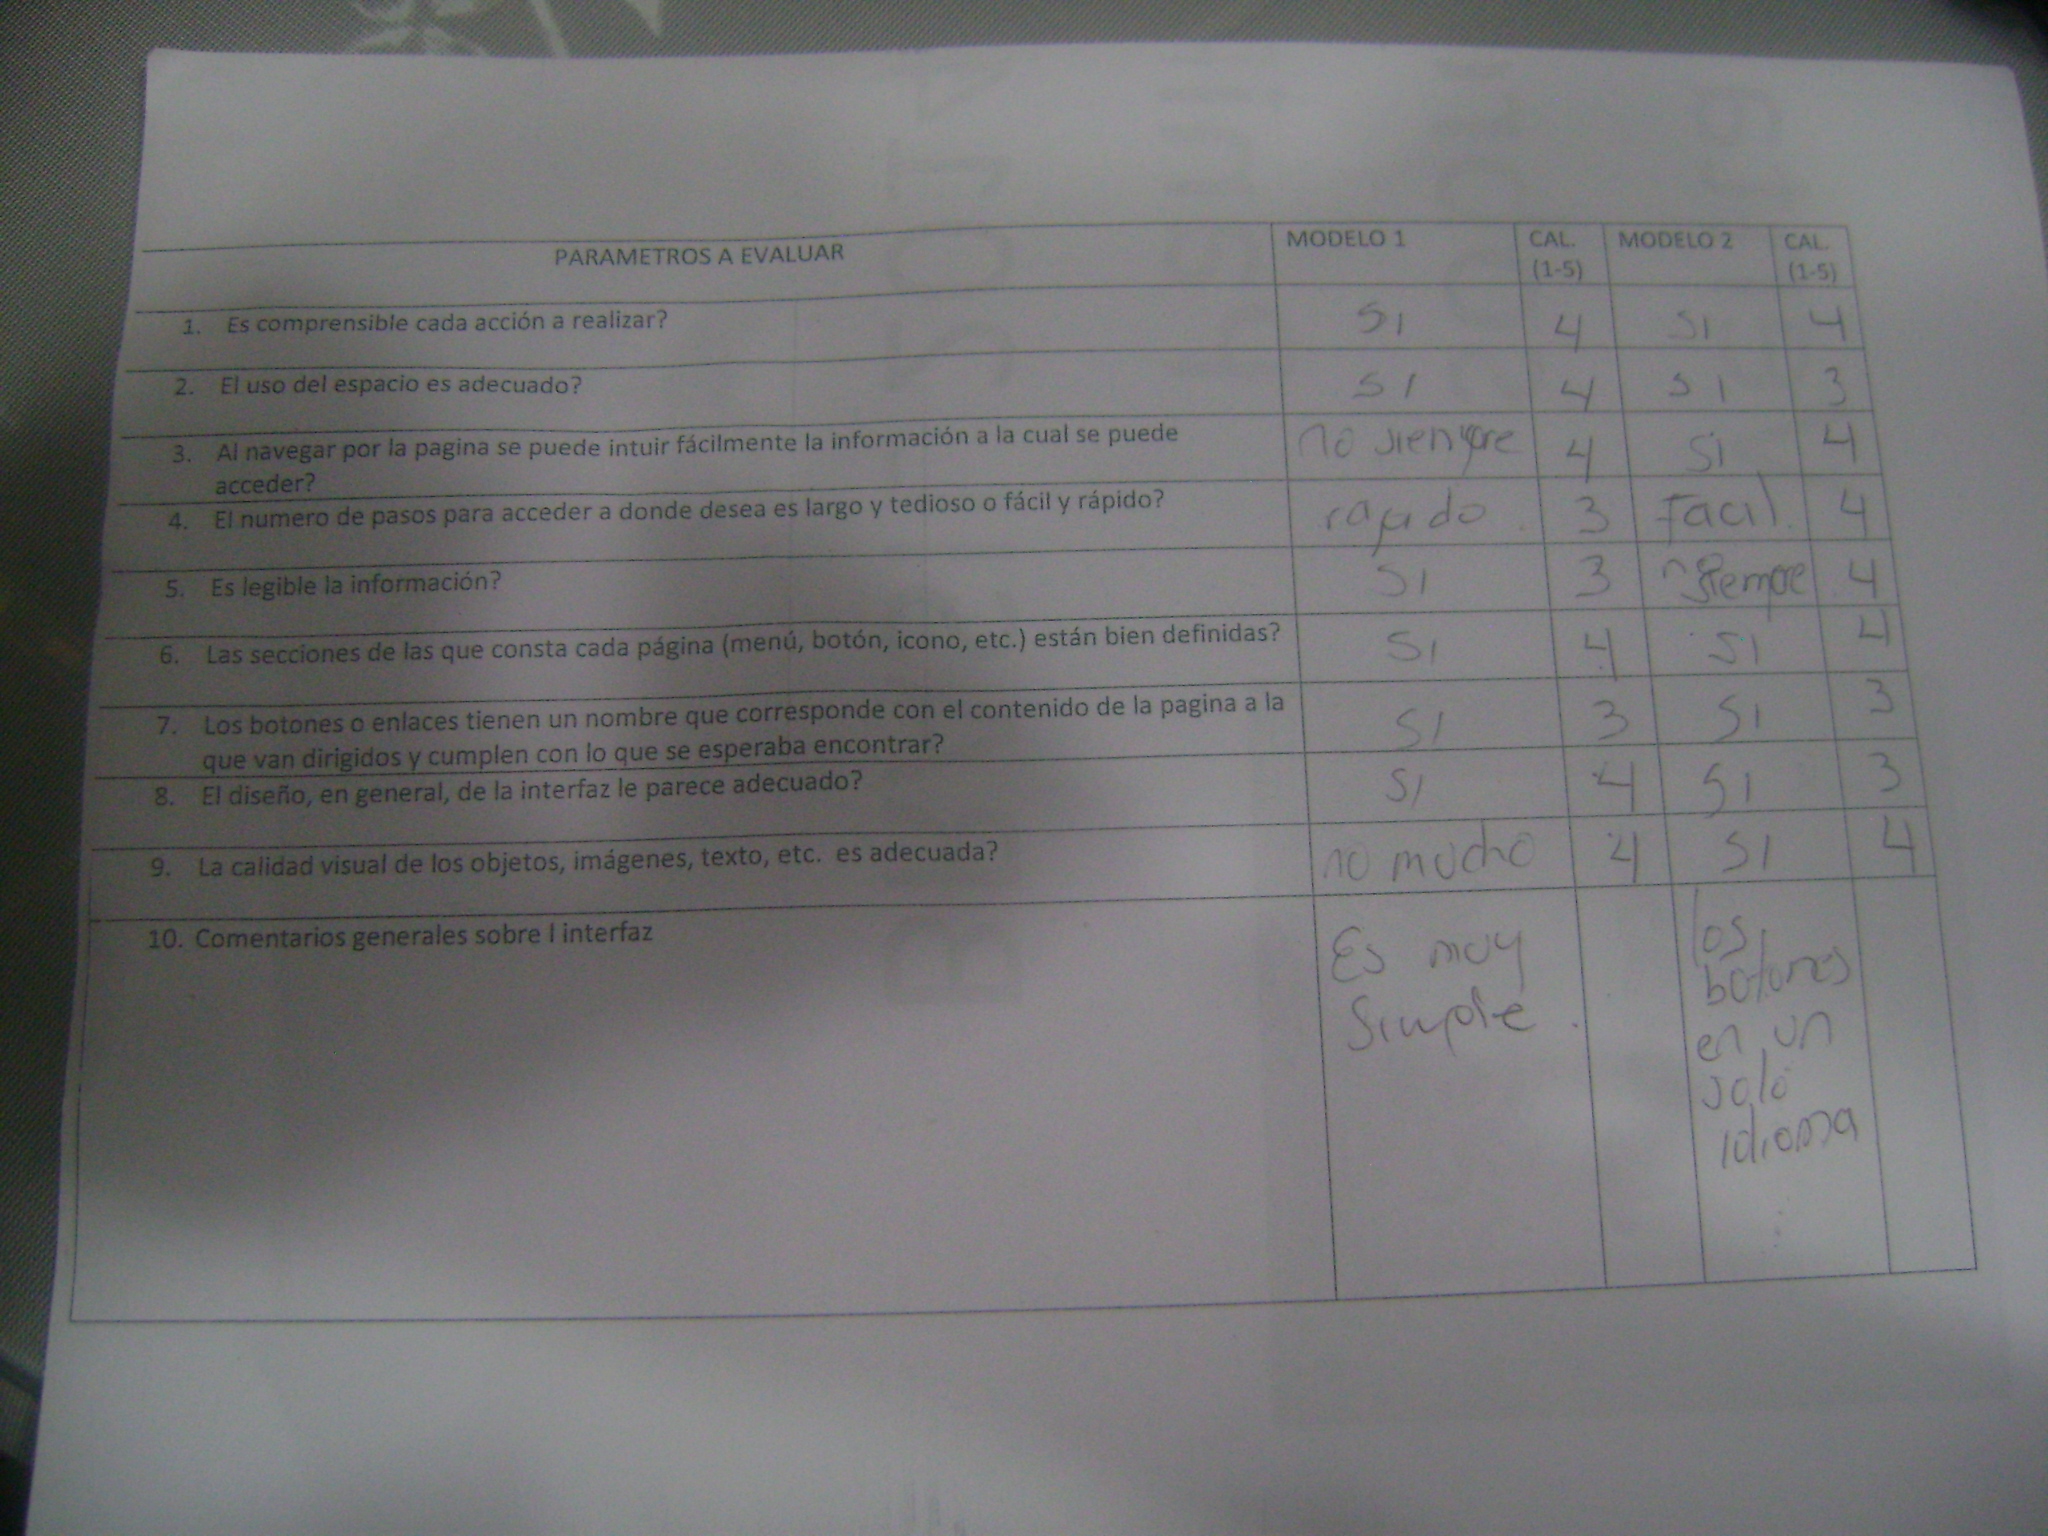 PARAMETROS A EVALUAR MODELO 1 CAL. (1-5) MODELO 2 CAL. (1-5)
1. Es comprensible cada acción a realizar? SI 4 SI 4
2. El uso del espacio es adecuado? SI 4 SI 3
3. Al navegar por la pagina se puede intuir fácilmente la información a la cual se puede no siempre 4 SI 4
acceder?
4. El numero de pasos para acceder a donde desea es largo y tedioso o fácil y rápido? rapido. 3 Facil. 4
5. Es legible la información? SI 3 siempre 4
6. Las secciones de las que consta cada página (menú, botón, icono, etc.) están bien definidas? SI 4 SI 4
7. Los botones o enlaces tienen un nombre que corresponde con el contenido de la pagina a la SI 3 SI 3
que van dirigidos y cumplen con lo que se esperaba encontrar?
8. El diseño, en general, de la interfaz le parece adecuado? SI 4 SI 3
9. La calidad visual de los objetos, imágenes, texto, etc. es adecuada? no mucho 4 SI 4
10. Comentarios generales sobre l interfaz
Es muy
Simple.
los
botones
en un
solo
idioma